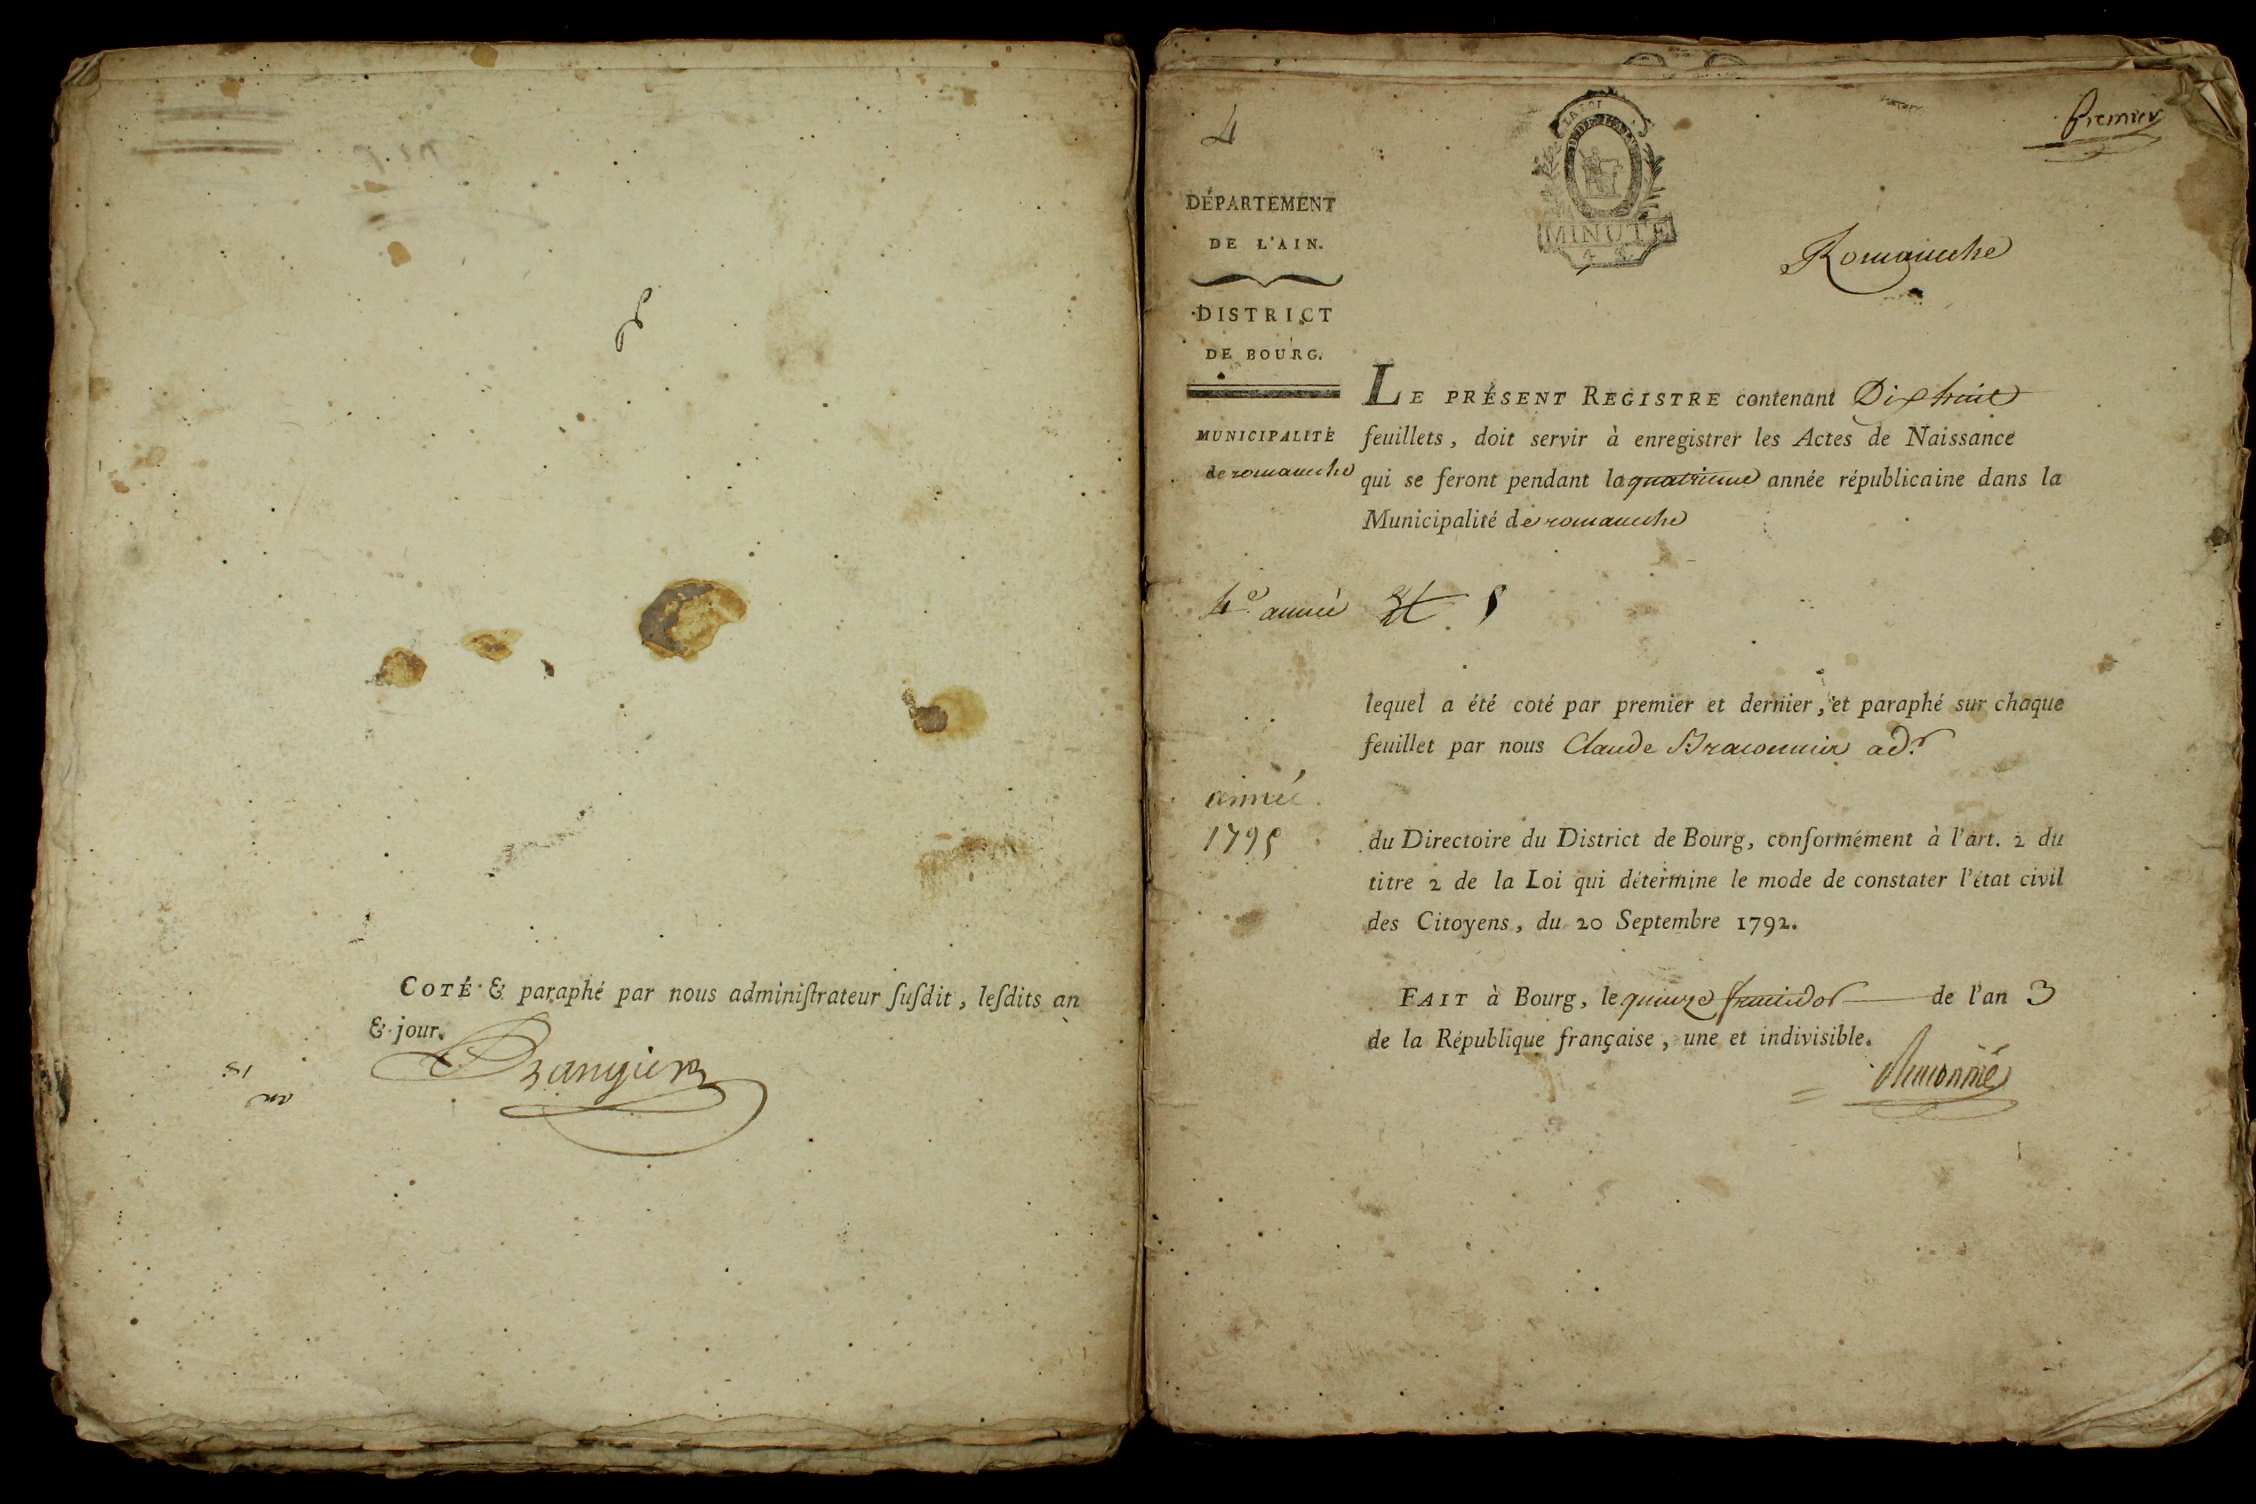 COTÉ & paraphé par nous adminiſtrateur ſuſdit, leſdits an
& jour.
4
Premier
LA LOI
MINUTE
DÉPARTEMENT
DE L'AIN.
Romaneche
DISTRICT
DE BOURG.
MUNICIPALITÉ
de romaneche
LE PRÉSENT REGISTRE contenant Dixhuit
feuillets, doit servir à enregistrer les Actes de Naissance
qui se feront pendant la quatrieme année républicaine dans la
Municipalité de romaneche
4e année
lequel a été coté par premier et dernier, et paraphé sur chaque
feuillet par nous Claude Braconnier adr
année
1795
du Directoire du District de Bourg, conformément à l'art. 2 du
titre 2 de la Loi qui détermine le mode de constater l'état civil
des Citoyens, du 20 Septembre 1792.
FAIT à Bourg, le quinze fructidor de l'an 3
de la République française, une et indivisible.